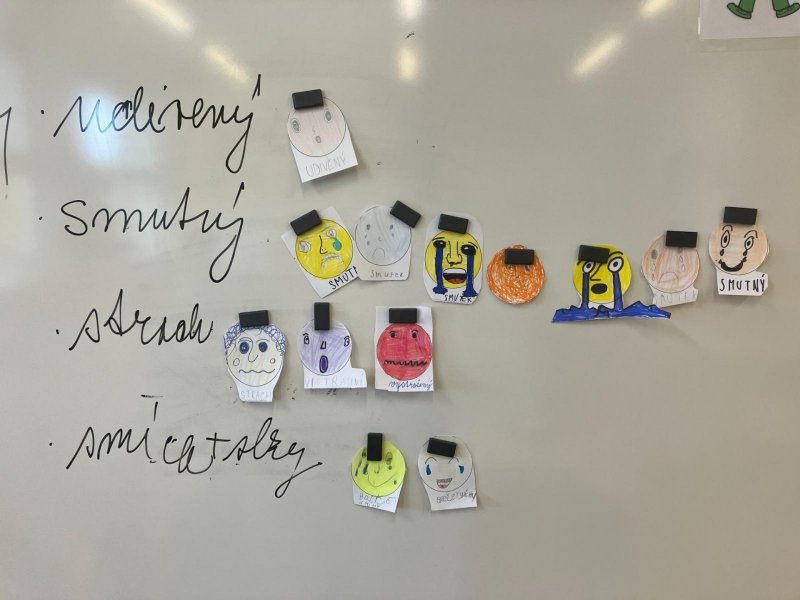 udivený
UDIVENÝ
smutný
SMUTNÝ
SMUTEK
SMUTEK
SMUTNÝ
strach
STRACH
vystrašený
smích + slzy